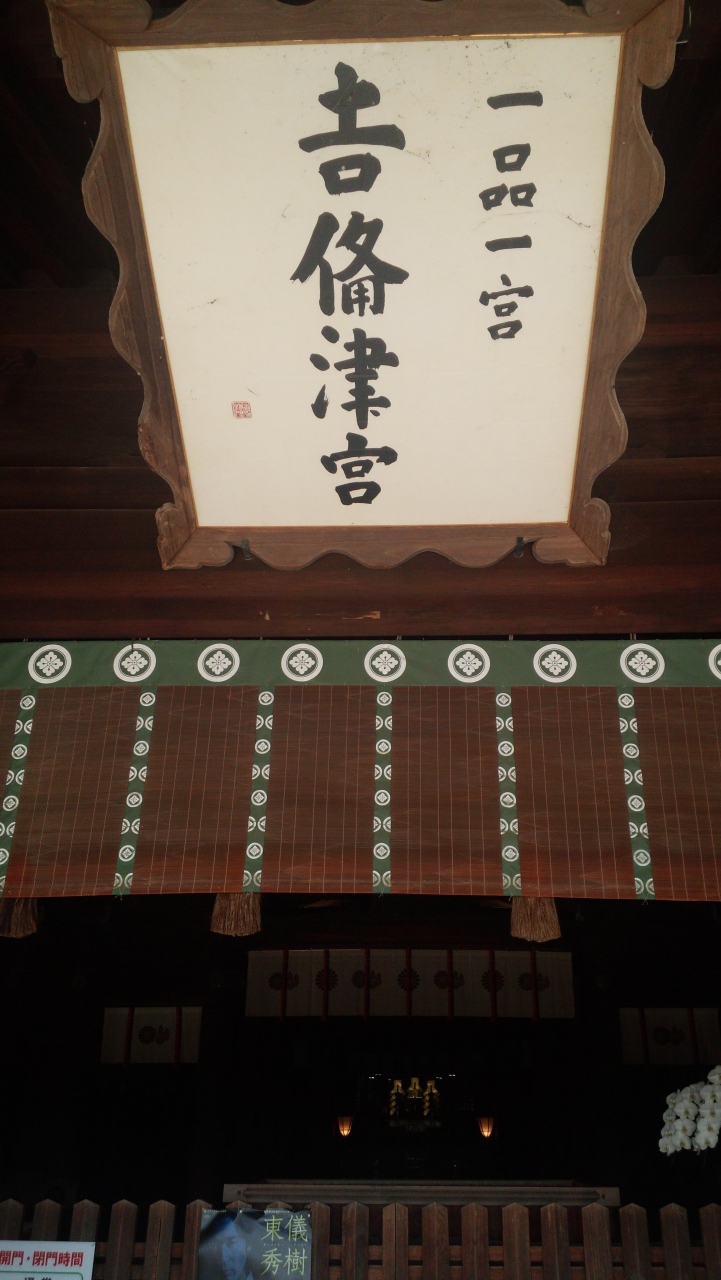 一品一宮
吉備津宮
東儀
秀樹
開門・閉門時間